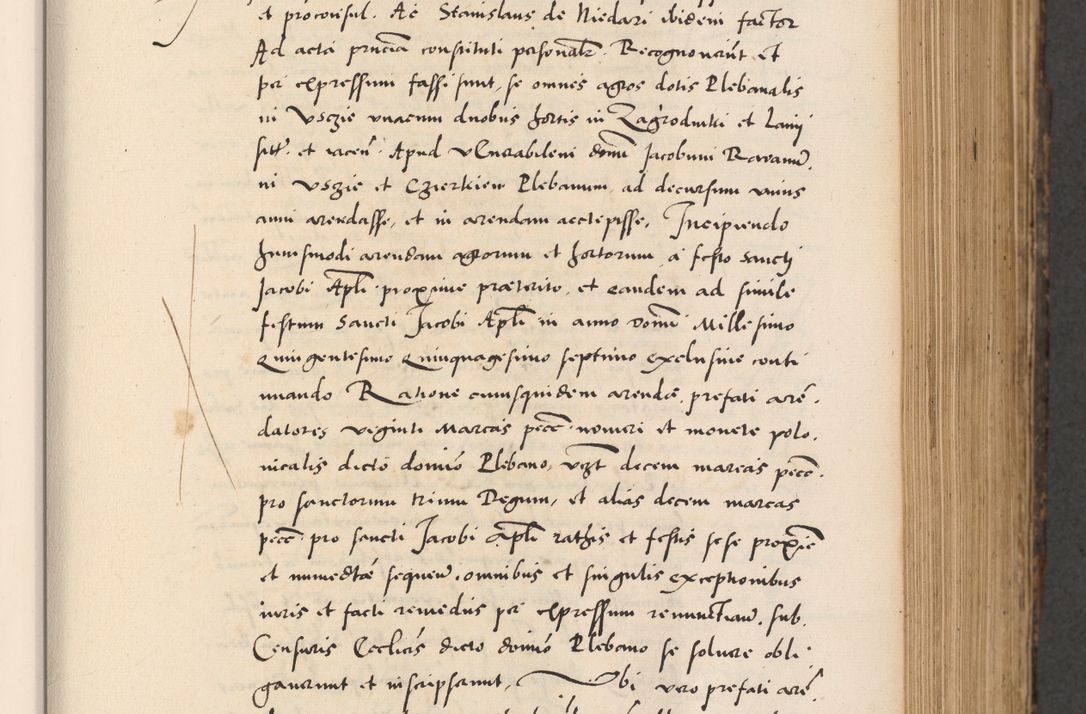 et proconsul. Ac Stanislaus de Niedari ibidem factor
Ad acta pncia constituti personalr. Recognoverūt et
per expressum fassi sunt, se omnes agros dotis Plebanalis
in Vsczie unacum duobus hortis in Zagrodniki et Lany
sitt. et iacen. Apud vēnerabilem domū Jacobum
in Vsczie et Czierkiew Plebanum, ad decursum unius
anni arendasse, et in arendam accepisse, Incipiendo
huiusmodi arendam agrorum et hortorum a festo sancti
Jacobi Apli proxime præterito, et eandem ad simile
festum Sancti Jacobi Apli in anno domī Millesimo
Quingentesimo Quinquagesimo septimo exclusive conti
nuando Ratione cuiusquidem arendæ, prefati arē.
datores viginti Marcas pecc. numeri et monete polo.
nicalis dicto domīo Plebano, vzt decem marcas pecc.
pro sanctorum trium Regum, et alias decem marcas
pecc. pro sancti Jacobi Apli rathis et festis sese proxīe
et immedtæ sequeñ. omnibus et singulis exceptionibus
iuris et facti remediis per expressum renunctiañ. sub.
Censuris Ecclicis dicto domīo Plebano se soluere obli
gauerunt et inscripserunt, Vbi vero prefati arē.